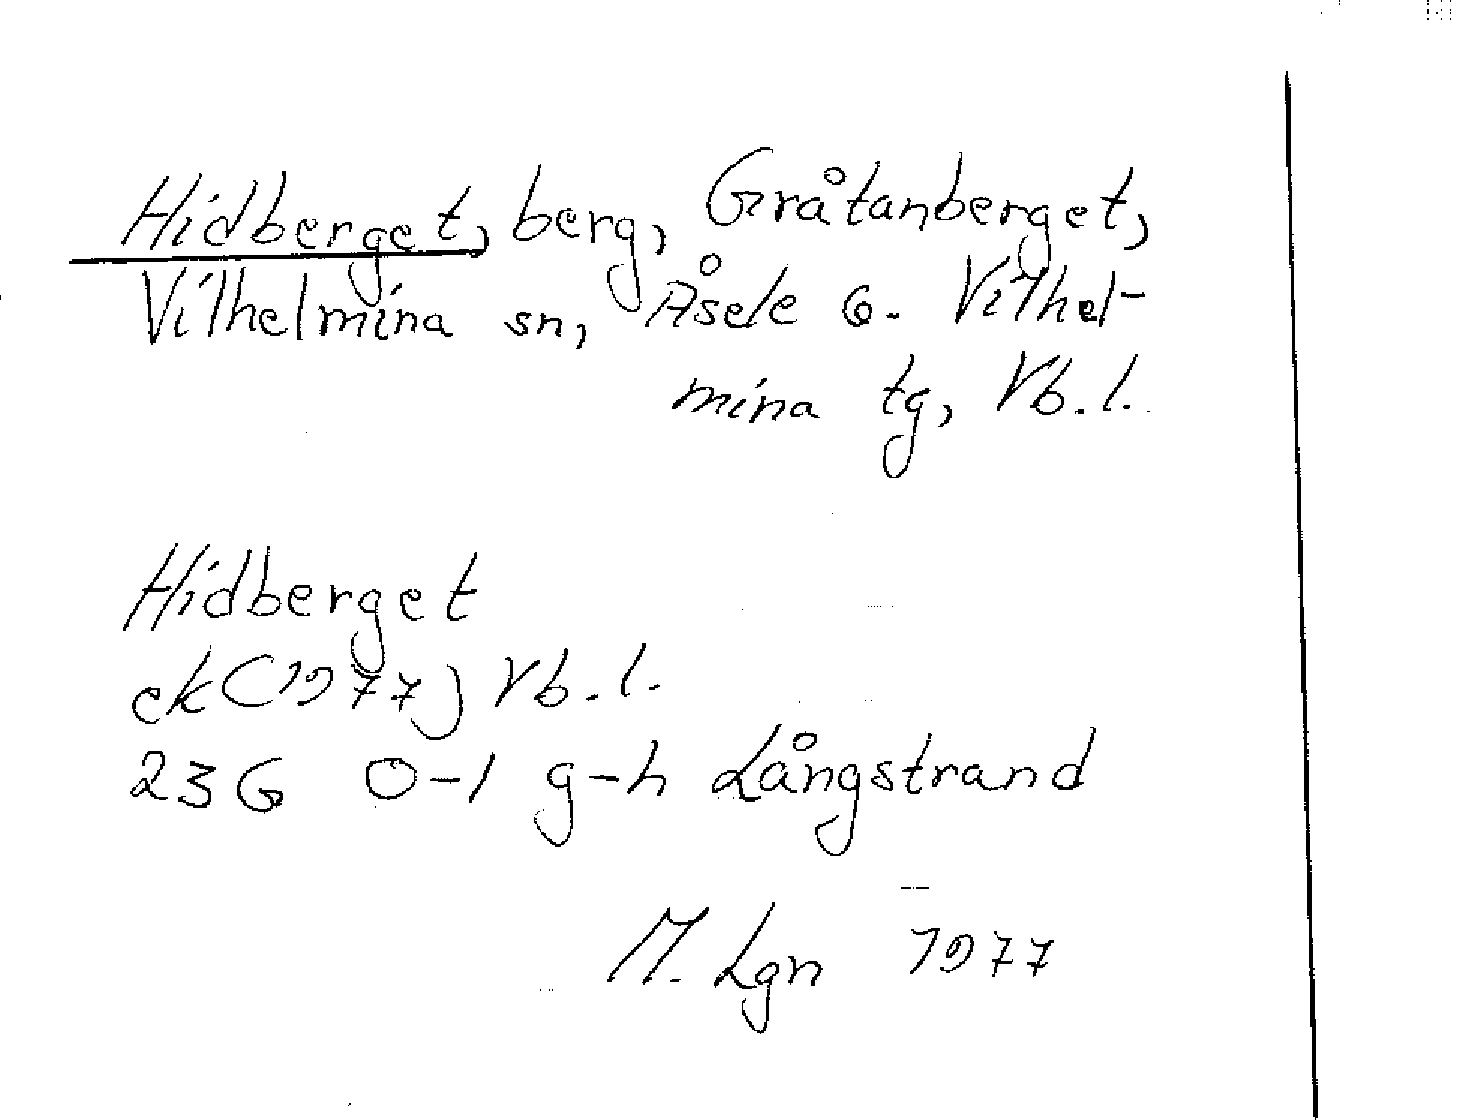 Hidberget, berg, Gråtanberget,
Vilhelmina sn, Åsele o. Vilhel-
mina tg, Vb. l.
Hidberget
ek (1977) Vb. l.
23G 0-1 g-h Långstrand
M. Lgn 1977